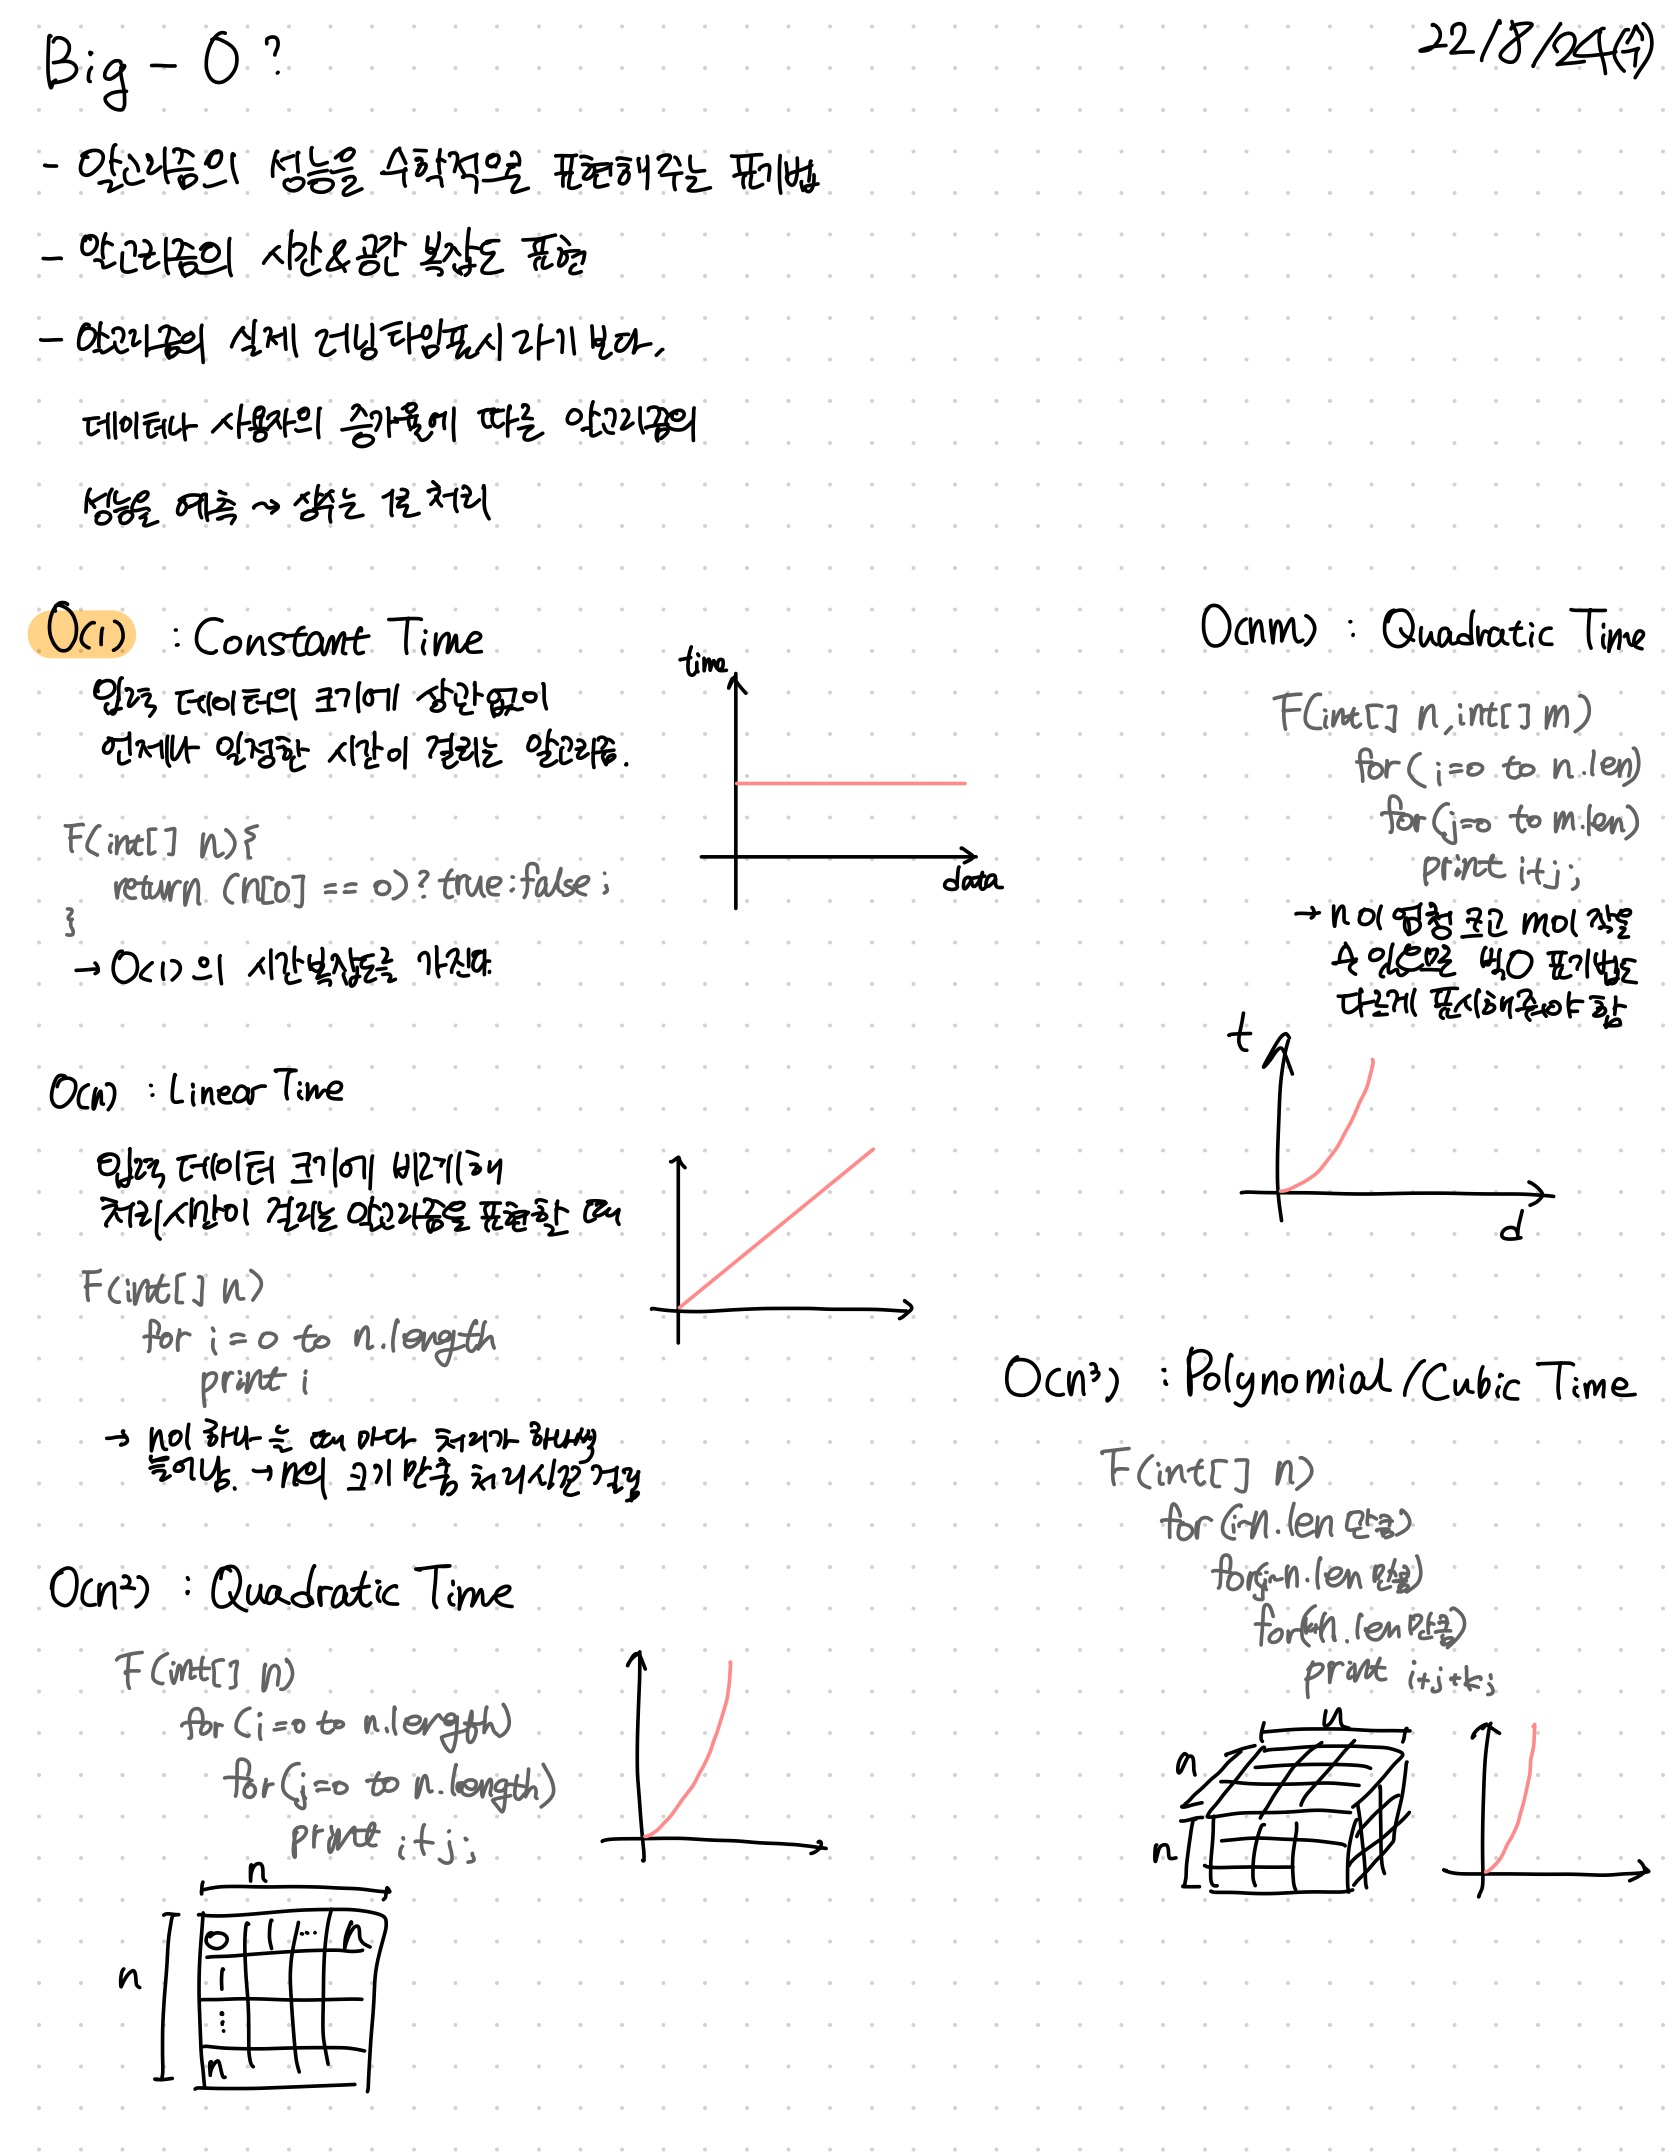 Big - O ?
22/8/24(수)
- 알고리즘의 성능을 수학적으로 표현해주는 표기법
- 알고리즘의 시간&공간 복잡도 표현
- 알고리즘의 실제 러닝타임표시라기 보다,
데이터나 사용자의 증가율에 따른 알고리즘의
성능을 예측 → 상수는 1로 처리
O(1) : Constant Time
입력 데이터의 크기에 상관없이
언제나 일정한 시간이 걸리는 알고리즘.
F(int[] n){
return (n[0] == 0)? true:false;
}
→ O(1)의 시간복잡도를 가진다
time
data
O(n) : Linear Time
입력 데이터 크기에 비례해
처리시간이 걸리는 알고리즘을 표현할 때
F(int[] n)
for i = 0 to n.length
print i
→ n이 하나 는 때 마다 처리가 하나씩
늘어남. → n의 크기 만큼 처리시간 걸림
O(n²) : Quadratic Time
F(int[] n)
for (i=0 to n.length)
for (j=0 to n.length)
print i+j;
n
n
0 1 ... n
1
⋮
n
O(nm) : Quadratic Time
F(int[] n, int[] m)
for (i=0 to n.len)
for (j=0 to m.len)
print i+j;
→ n이 엄청 크고 m이 작을
수 있으므로 빅O 표기법도
다르게 표시해주어야 함
t
d
O(n³) : Polynomial/Cubic Time
F(int[] n)
for (i~n.len 만큼)
for(j~n.len 만큼)
for(k~n.len 만큼)
print i+j+k;
n
n
n